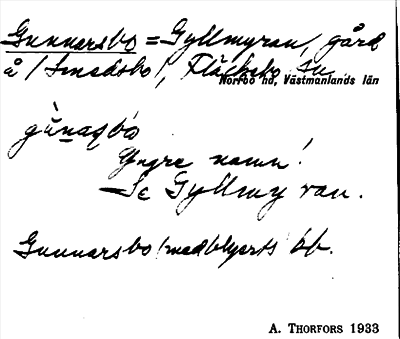 Gunnarsbo = Gyllmyran, gård
å (Smedsbo), Fläckebo sn
Norrbo hd, Västmanlands län
Yngre namn!
Se Gyllmyran.
Gunnarsbo (med blyerts) ób.
A. THORFORS 1933